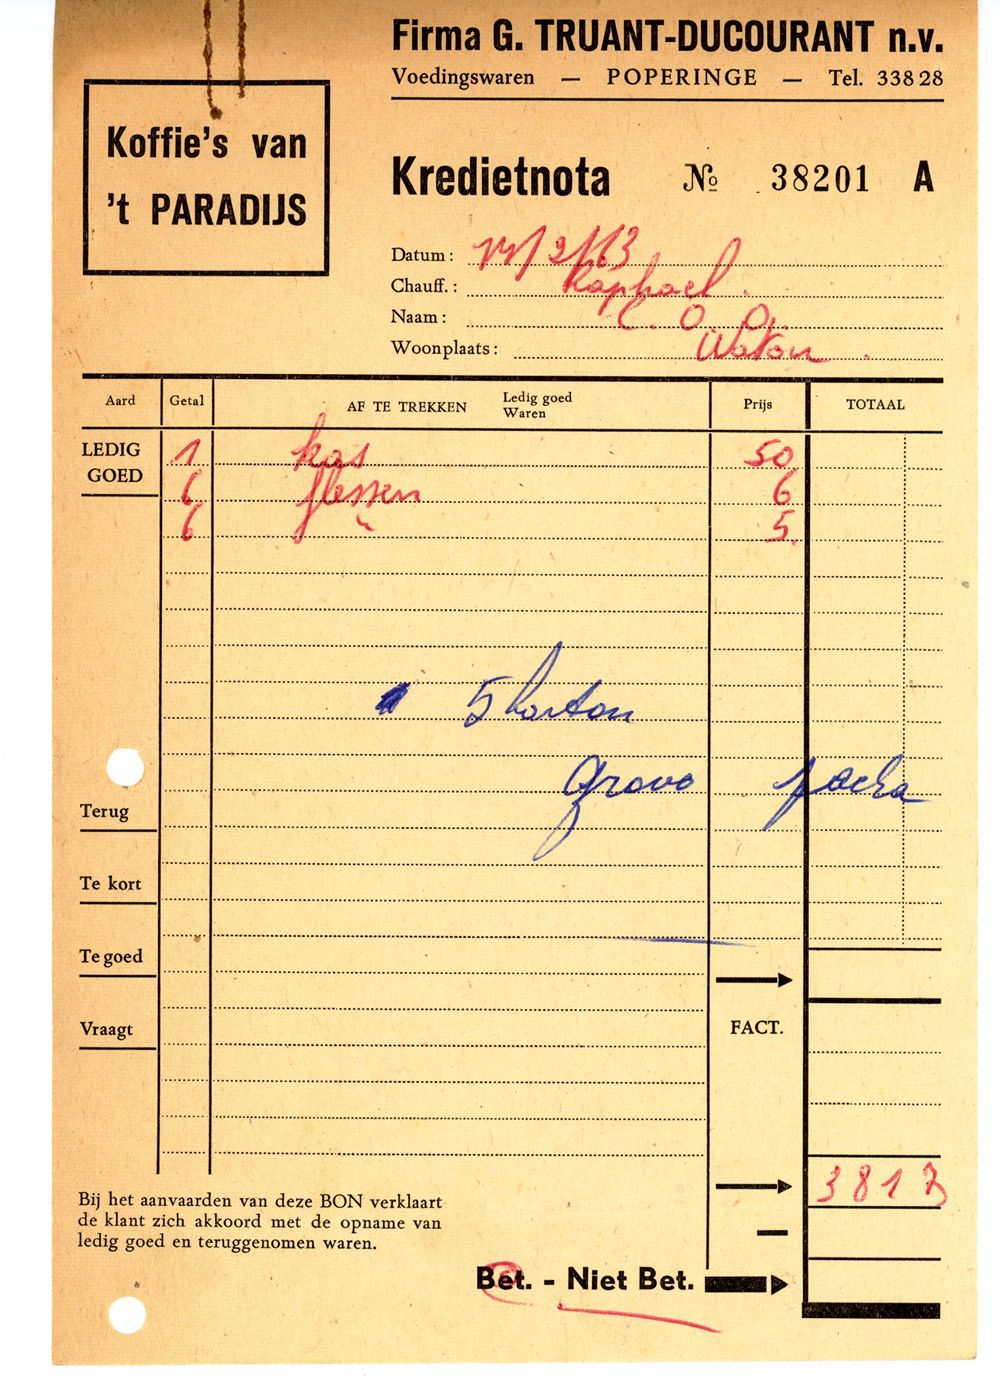 Firma G. TRUANT-DUCOURANT n.v.
Voedingswaren — POPERINGE — Tel. 338 28
Koffie's van
't PARADIJS
Kredietnota № 38201 A
Datum:
Chauff.: Raphael.
Naam: C. O. O.
Woonplaats: Watou.
Aard Getal AF TE TREKKEN Ledig goed Waren Prijs TOTAAL
LEDIG GOED 1 kas 50
6 flessen 6
6 " 5
5 karton
Terug
Te kort
Te goed
Vraagt
FACT.
381
Bij het aanvaarden van deze BON verklaart
de klant zich akkoord met de opname van
ledig goed en teruggenomen waren.
Bet. - Niet Bet.